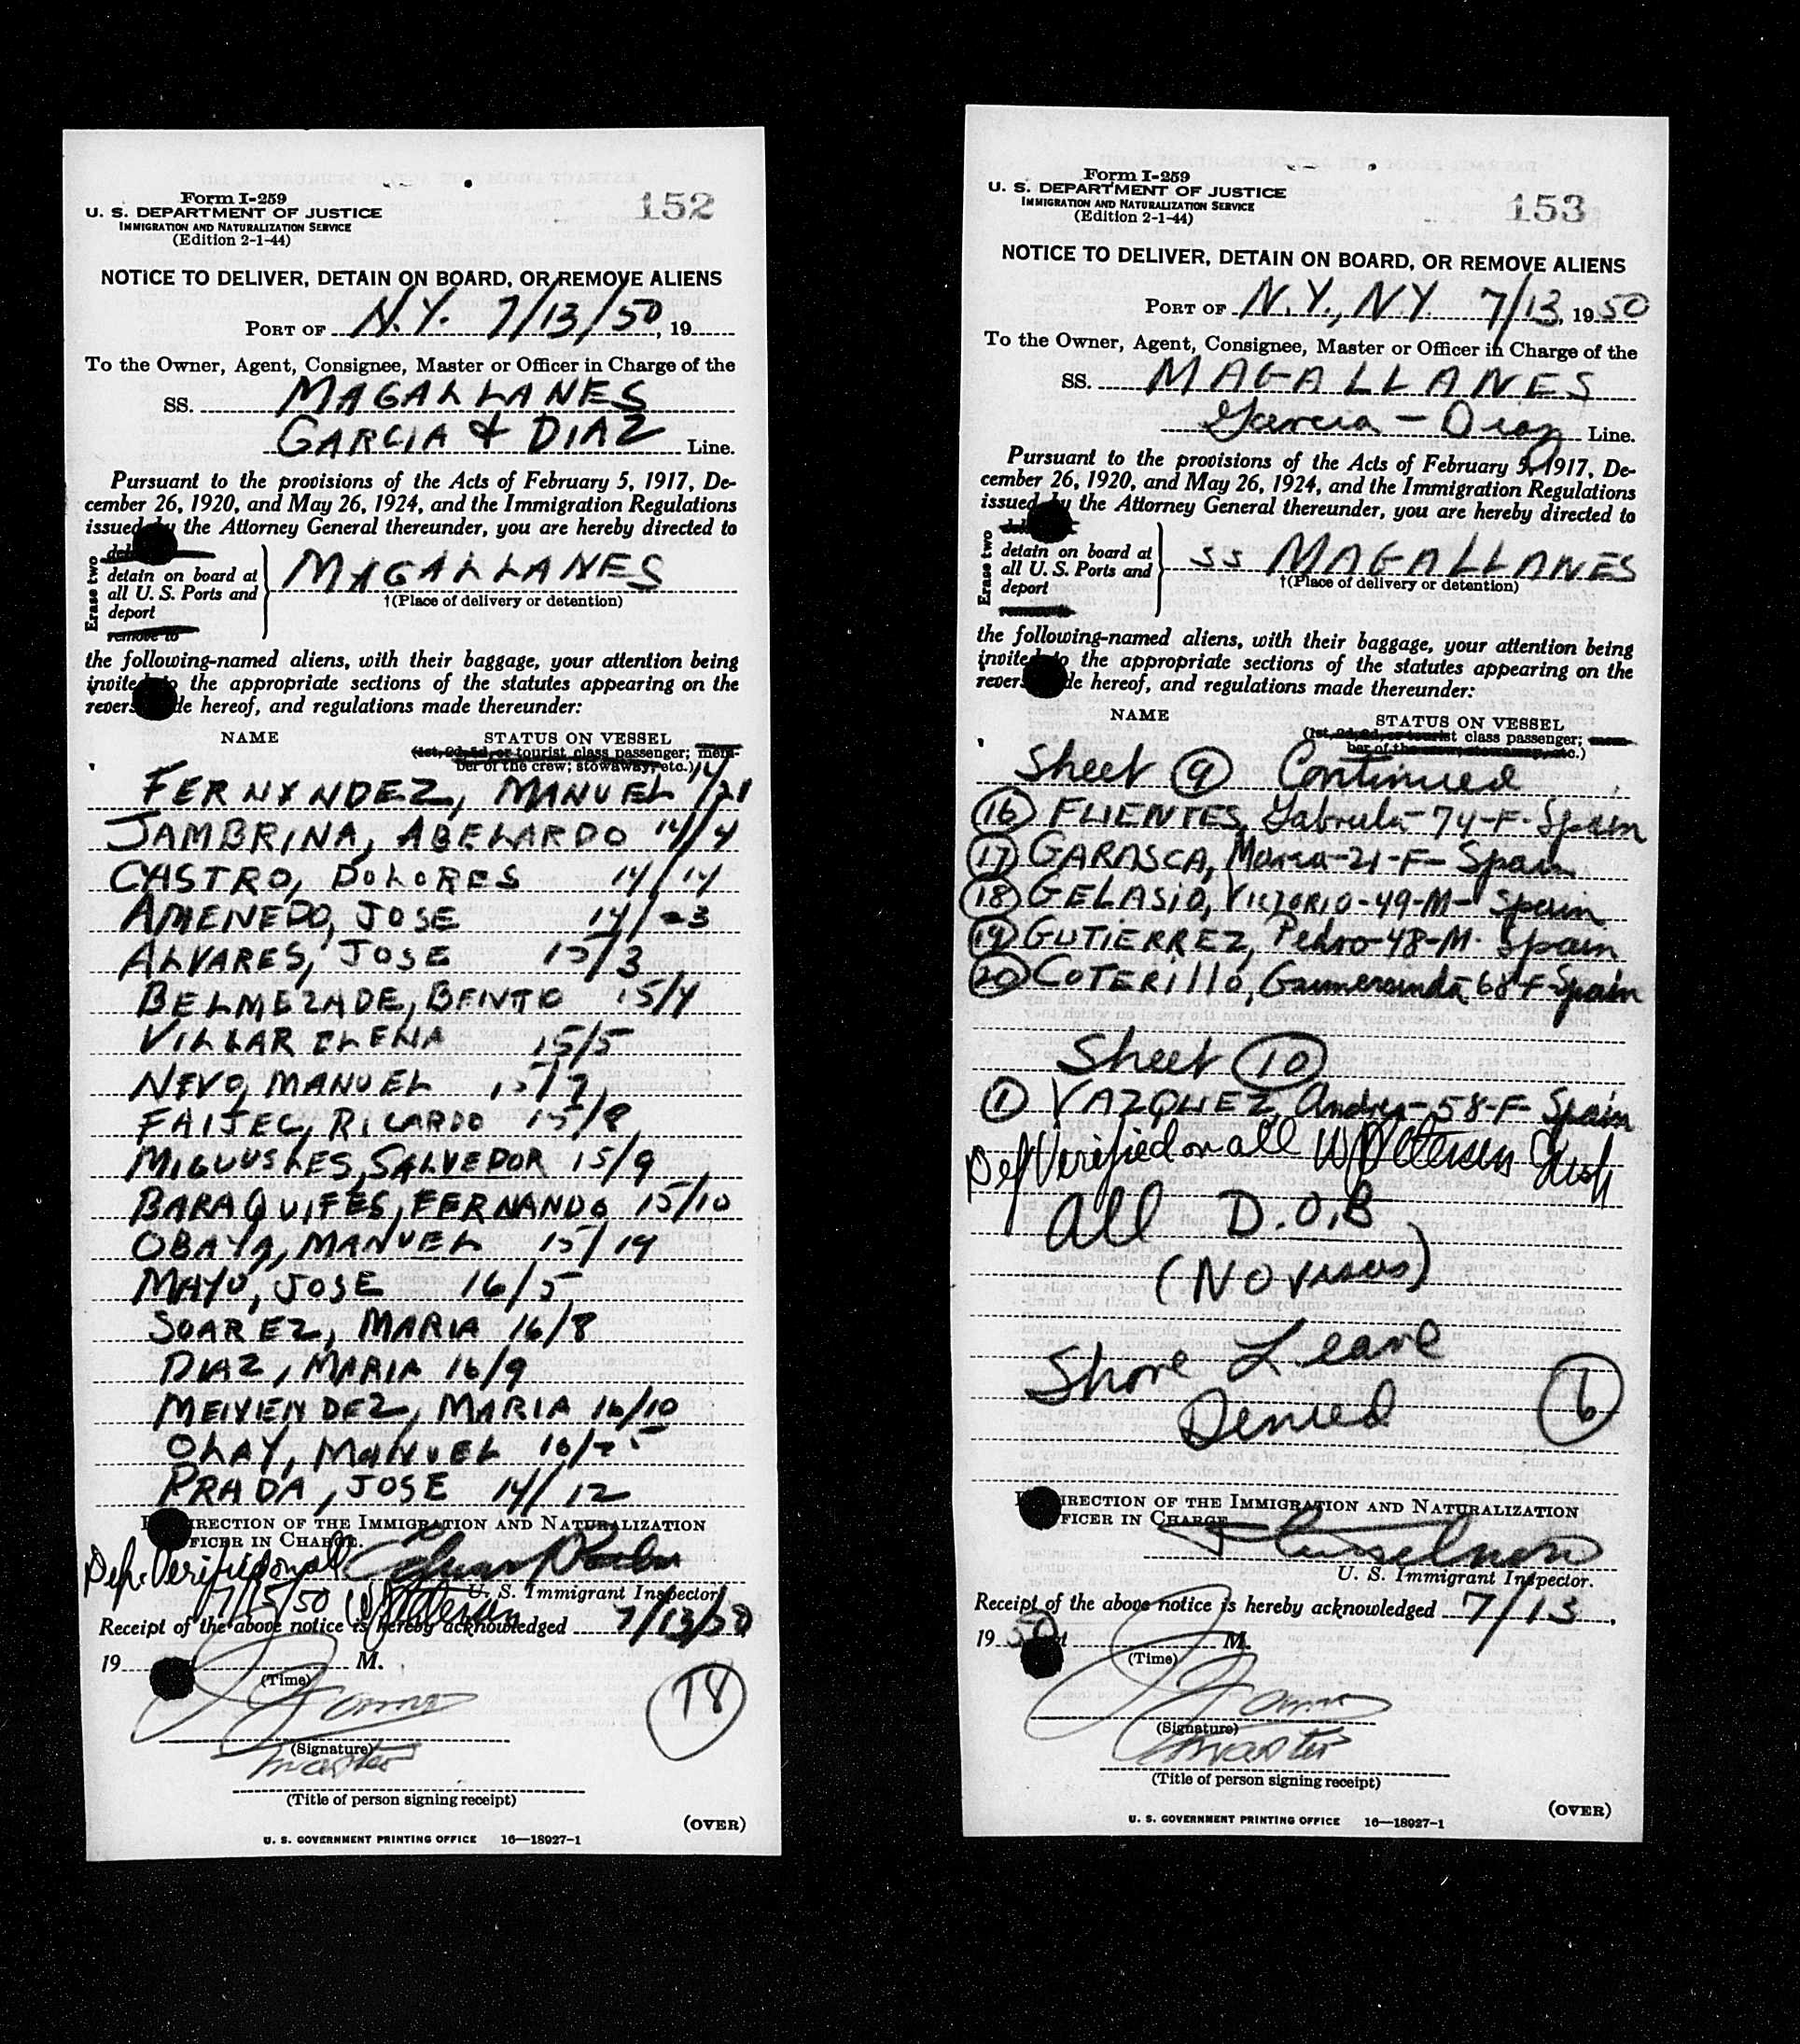 Form I-259
U. S. DEPARTMENT OF JUSTICE
IMMIGRATION AND NATURALIZATION SERVICE
(Edition 2-1-44)
152
NOTICE TO DELIVER, DETAIN ON BOARD, OR REMOVE ALIENS
PORT OF N.Y. 7/13/50, 19
To the Owner, Agent, Consignee, Master or Officer in Charge of the
SS. MAGALLANES
GARCIA & DIAZ Line.
Pursuant to the provisions of the Acts of February 5, 1917, De-
cember 26, 1920, and May 26, 1924, and the Immigration Regulations
issued by the Attorney General thereunder, you are hereby directed to
Erase two
detain on board at
all U. S. Ports and
deport
remove to
MAGALLANES
†(Place of delivery or detention)
the following-named aliens, with their baggage, your attention being
invited to the appropriate sections of the statutes appearing on the
reverse side hereof, and regulations made thereunder:
NAME
STATUS ON VESSEL
(1st, 2d, 3d, or tourist class passenger; mem-
ber of the crew; stowaway, etc.)
FERNANDEZ, MANUEL 14/21
JAMBRINA, ABELARDO 14/4
CASTRO, DOLORES 14/14
AMENEDO, JOSE 14/23
ALVARES, JOSE 15/3
BELMEZADE, BENTO 15/4
VILLAR ELENA 15/5
NEVO, MANUEL 15/7
FAIJEC, RICARDO 15/8
MIGUUSLES, SALVEDOR 15/9
BARAQUIFES, FERNANDO 15/10
OBAYA, MANUEL 15/19
MAYO, JOSE 16/5
SOAREZ, MARIA 16/8
DIAZ, MARIA 16/9
MENENDEZ, MARIA 16/10
OLAY, MANUEL 16/
PRADA, JOSE 14/12
DIRECTION OF THE IMMIGRATION AND NATURALIZATION
OFFICER IN CHARGE.
Dep. Verified on all
7/15/50 W Petersen
U. S. Immigrant Inspector
Receipt of the above notice is hereby acknowledged 7/13/50
19 M.
(Time)
(Signature)
Master
(Title of person signing receipt)
18
(OVER)
U. S. GOVERNMENT PRINTING OFFICE 16—18927-1
Form I-259
U. S. DEPARTMENT OF JUSTICE
IMMIGRATION AND NATURALIZATION SERVICE
(Edition 2-1-44)
153
NOTICE TO DELIVER, DETAIN ON BOARD, OR REMOVE ALIENS
PORT OF N.Y., N.Y. 7/13, 1950
To the Owner, Agent, Consignee, Master or Officer in Charge of the
SS. MAGALLANES
Garcia - Diaz Line.
Pursuant to the provisions of the Acts of February 5, 1917, De-
cember 26, 1920, and May 26, 1924, and the Immigration Regulations
issued by the Attorney General thereunder, you are hereby directed to
Erase two
detain on board at
all U. S. Ports and
deport
remove to
SS MAGALLANES
†(Place of delivery or detention)
the following-named aliens, with their baggage, your attention being
invited to the appropriate sections of the statutes appearing on the
reverse side hereof, and regulations made thereunder:
NAME
STATUS ON VESSEL
(1st, 2d, 3d, or tourist class passenger; mem-
ber of the crew; stowaway, etc.)
Sheet 9 Continued
16 FUENTES, Gabriela-74-F-Spain
17 GARASCA, Maria-21-F-Spain
18 GELASIO, VICTORIO-49-M-Spain
19 GUTIERREZ, Pedro-48-M-Spain
20 COTERILLO, Gumersinda-68-F-Spain
Sheet 10
1 VAZQUEZ, Andrea-58-F-Spain
Dep Verified on all W Petersen
all D.O.B
(NO visas)
Shore Leave
Denied
6
DIRECTION OF THE IMMIGRATION AND NATURALIZATION
OFFICER IN CHARGE
U. S. Immigrant Inspector.
Receipt of the above notice is hereby acknowledged 7/13,
1950 at M.
(Time)
(Signature)
Master
(Title of person signing receipt)
(OVER)
U. S. GOVERNMENT PRINTING OFFICE 16—18927-1